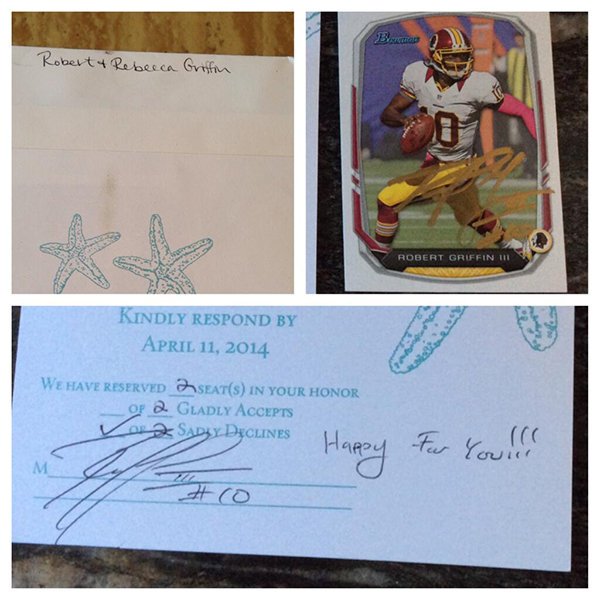 Robert & Rebecca Griffin
Bowman
10
ROBERT GRIFFIN III
KINDLY RESPOND BY
APRIL 11, 2014
WE HAVE RESERVED 2 SEAT(S) IN YOUR HONOR
__ OF 2 GLADLY ACCEPTS
✓ OF 2 SADLY DECLINES
M
III
#10
Happy For You!!!